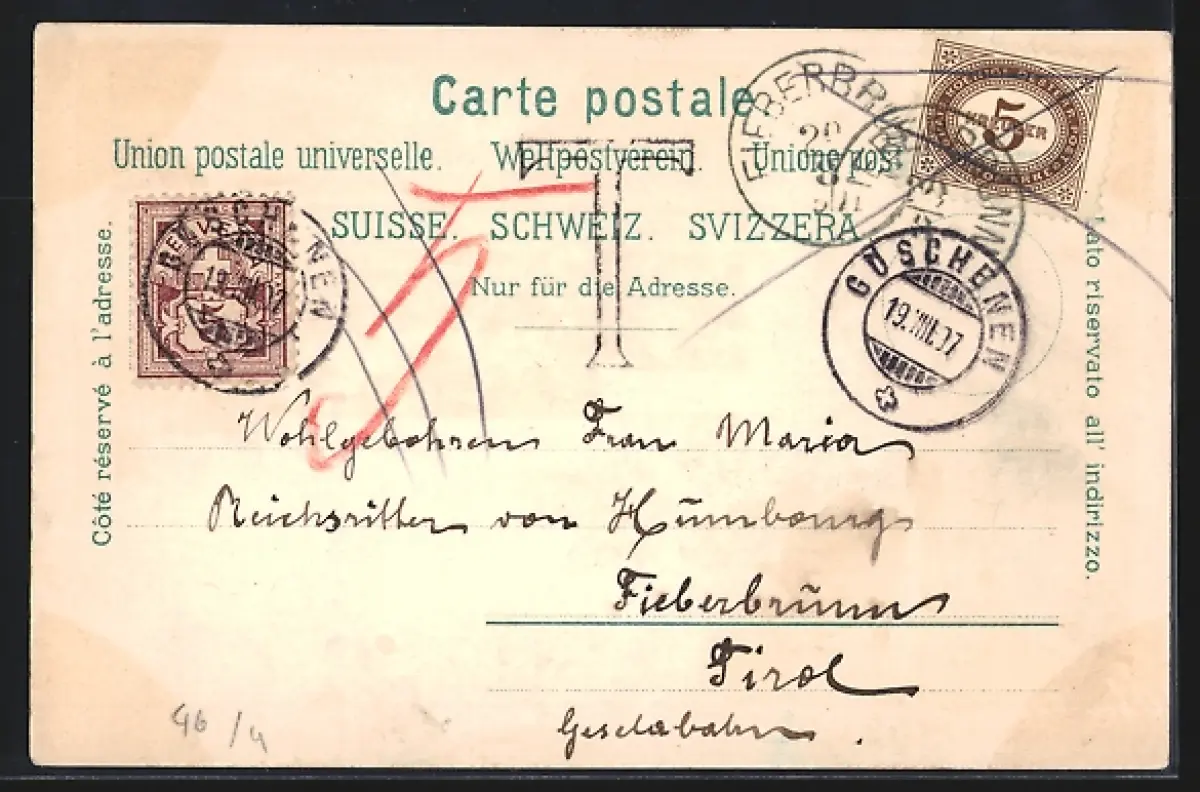 Carte postale
Union postale universelle. Weltpostverein. Unione pos
SUISSE. SCHWEIZ. SVIZZERA
Nur für die Adresse.
Côté réservé à l'adresse.
lato riservato all' indirizzo.
T
5
5
KREUZER
FIEBERBRUNN
GÖSCHENEN
19.VIII.97
HELVETIA
GÖSCHENEN
19.VIII.97
Wohlgebohren Frau Maria
Reichsritter von Humbourg
Fieberbrünn
Tirol
Giselabahn.
46/4